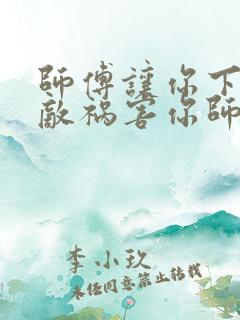 師傅讓你下
敵祸害你師
李小玖
未经同意禁止转载